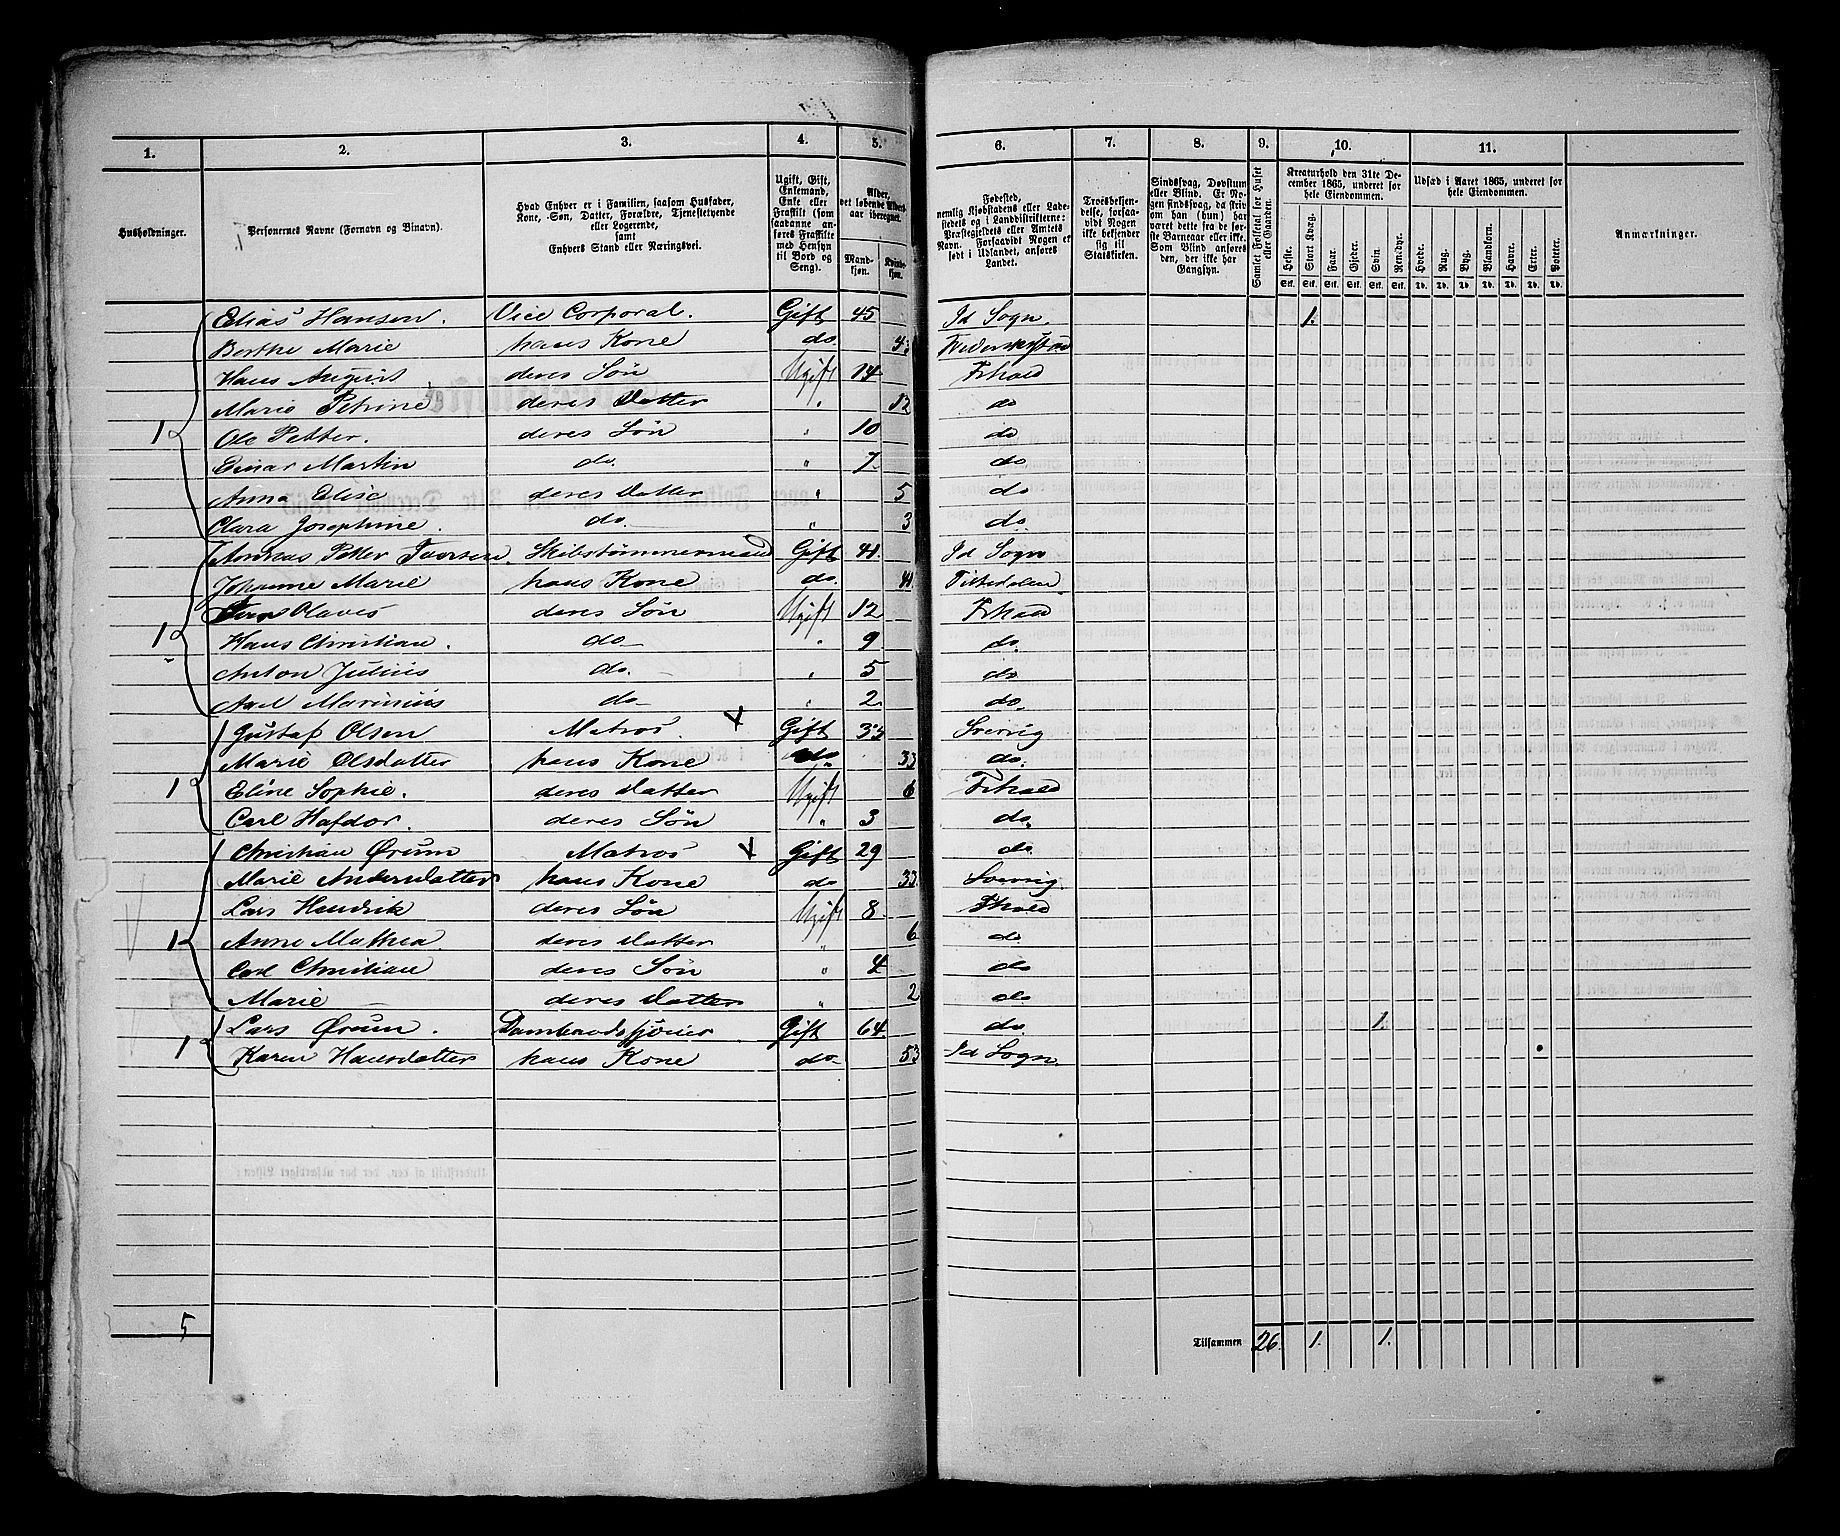 1. 2. 3. 4. 5. 6. 7. 8. 9. 10. 11.
Husholdninger.
Personernes Navne (Fornavn og Binavn).
Hvad Enhver er i Familien, saasom Husfader, Kone, Søn, Datter, Forældre, Tjenestetyende eller Logerende, samt Enhvers Stand eller Næringsvei.
Ugift, Gift, Enkemand, Enke eller Fraskilt (som saadanne anføres Fraskilte med Hensyn til Bord og Seng).
Alder, det løbende Alders-aar iberegnet.
Mandkjøn. Kvindekjøn.
Fødested, nemlig Kjøbstadens eller Ladestedets og i Landdistrikterne: Præstegjeldets eller Amtets Navn. Forsaavidt Nogen er født i Udlandet, anføres Landet.
Troesbekjendelse, forsaavidt Nogen ikke bekjender sig til Statskirken.
Sindssvag, Døvstum eller Blind. Er Nogen sindssvag, da skriv om han (hun) har været dette fra de første Barneaar eller ikke. Som Blind anføres den, der ikke har Gangsyn.
Samlet Folketal for Huset eller Gaarden.
Kreaturhold den 31te December 1865, underet for hele Eiendommen.
Heste. Stort Kvæg. Faar. Gjeder. Svin. Rensdyr.
Stk. Stk. Stk. Stk. Stk. Stk.
Udsæd i Aaret 1865, underet for hele Eiendommen.
Hvede. Rug. Byg. Blandkorn. Havre. Erter. Poteter.
Td. Td. Td. Td. Td. Td. Td.
Anmærkninger.
Elias Hansen. Vice Corporal. Gift 45 Id Sogn. 1.
Berthe Marie hans Kone do.
Hans August deres Søn Ugift 14 Frhald
Marie Petrine deres Datter " 12 do
1 Ole Petter. deres Søn " 10 do
Einar Martin do. " 7 do
Anna Elise deres Datter " 5 do
Clara Josephine. do. " 3 do.
Andreas Petter Skibstømmermand Gift 41. Id Sogn
Johanne Marie hans Kone do. 41 Tistedalen
Olaves deres Søn Ugift 12 Frhald
1 Hans Christian. do " 9 do.
Anton Julius do. " 5 do
Axel Marinius do " 2. do.
Gustaf Olsen Matros. X Gift 33 Sverrig
Marie Olsdatter hans Kone do 33 do.
1 Eline Sophie. deres Datter Ugift 6 Frhald
Carl Hafdor. deres Søn " 3 do.
Christian Ørum Matros X Gift 29 do.
Marie Andersdatter hans Kone do 33. Sverrig.
Lars Hendrik deres Søn Ugift 8. Frhald
1 Anne Mathea deres Datter " 6 do
Carl Christian deres Søn " 4 do
Marie deres Datter " 2 do
Lars Ørum. Gift 64 do. 1.
1 Karen Hansdatter hans Kone do. 53 Id Sogn.
5 Tilsammen 26. 1. 1.